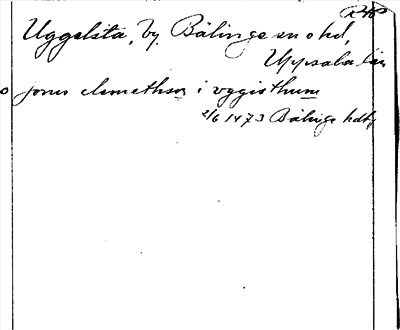 Uggelsta, by, Bälinge sn o hd,
Uppsala län
jonis clemethson i vggisthum
2/6 1473 Bälinge hdt